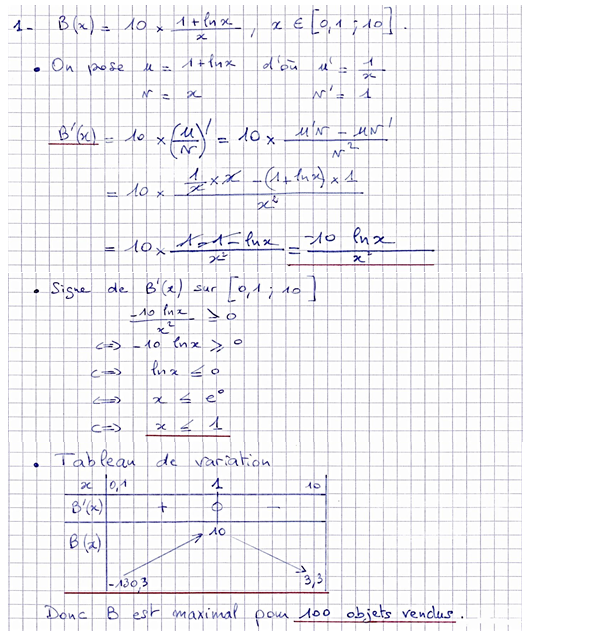 1- B(x) = 10 × (1+lnx)/x , x ∈ [0,1 ; 10].
• On pose u = 1+lnx d'où u' = 1/x
v = x v' = 1
B'(x) = 10 × (u/v)' = 10 × (u'v - uv')/v²
= 10 × (1/x × x - (1+lnx) × 1)/x²
= 10 × (1 - 1 - lnx)/x² = (-10 lnx)/x²
• Signe de B'(x) sur [0,1 ; 10]
(-10 lnx)/x² ≥ 0
<=> -10 lnx ≥ 0
<=> lnx ≤ 0
<=> x ≤ e⁰
<=> x ≤ 1
• Tableau de variation
x 0,1 1 10
B'(x) + 0 -
B(x) 10
-130,3 3,3
Donc B est maximal pour 100 objets vendus.